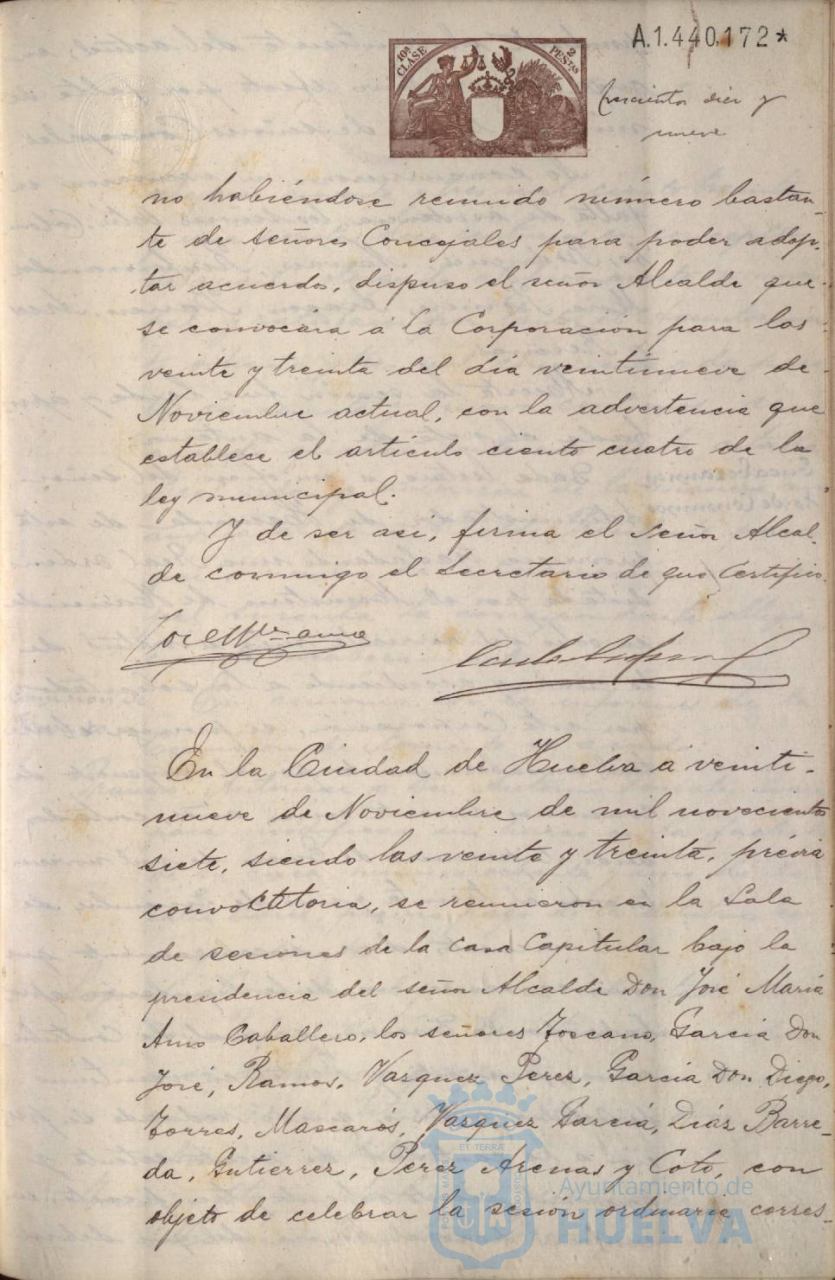 A.1.440.172*
10ª CLASE
2 PESTAS
trescientos diez y
nueve
no habiéndose reunido número bastan-
te de señores Concejales para poder adop-
tar acuerdo, dispuso el señor Alcalde que
se convocára á la Corporación para las
veinte y treinta del día veintinueve de
Noviembre actual, con la advertencia que
establece el artículo ciento cuatro de la
ley municipal.
Y de ser así, firma el Señor Alcal-
de conmigo el Secretario de que Certifico.
En la Ciudad de Huelva á veinti-
nueve de Noviembre de mil novecientos
siete, siendo las veinte y treinta, prévia
convocatoria, se reunieron en la Sala
de sesiones de la Casa Capitular bajo la
presidencia del señor Alcalde Don José María
Amo Caballero, los señores Toscano, García Don
José, Ramos, Vazquez Perez, García Don Diego,
Torres, Mascarós, Vazquez García, Diáz Barre-
da, Gutierrez, Perez Arenas y Coto, con
objeto de celebrar la sesión ordinaria corres-
Ayuntamiento de
HUELVA